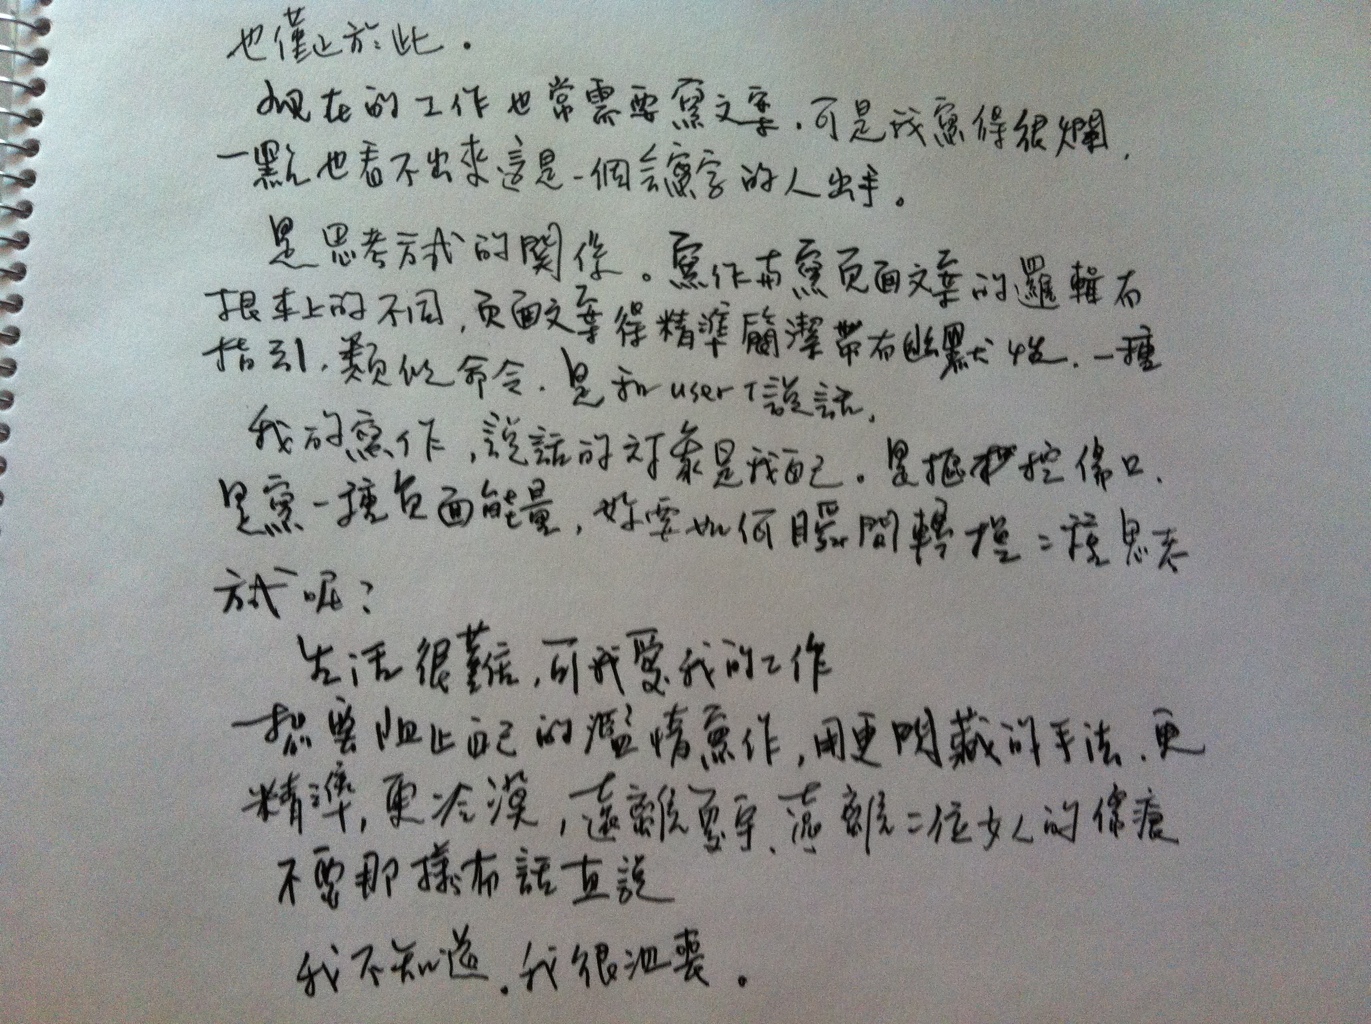 也僅止於此。
現在的工作也常需要寫文案，可是我寫得很爛，
一點也看不出來這是一個會寫字的人出手。
是思考方式的關係。寫作與寫頁面文案的邏輯有
根本上的不同，頁面文案得精準簡潔帶有幽默性，一種
指引，類似命令，是和user在說話，
我的寫作，說話的對象是我自己。是摳挖傷口，
是寫一種負面能量，妳要如何瞬間轉換二種思考
方式呢？
生活很難，可我愛我的工作
想要阻止自己的濫情寫作，用更閃藏的手法，更
精準，更冷漠，遠離夏宇，遠離二位女人的傷痕
不要那樣有話直說
我不知道，我很沮喪。